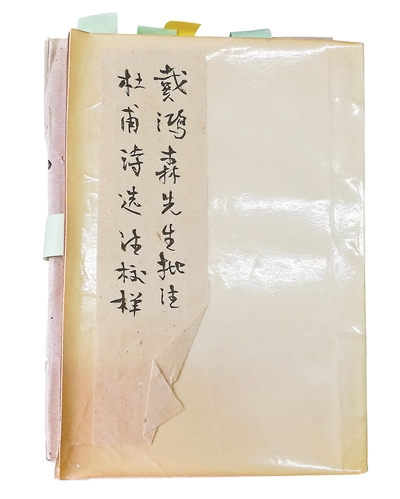 戴鸿森先生批注
杜甫诗选注校样